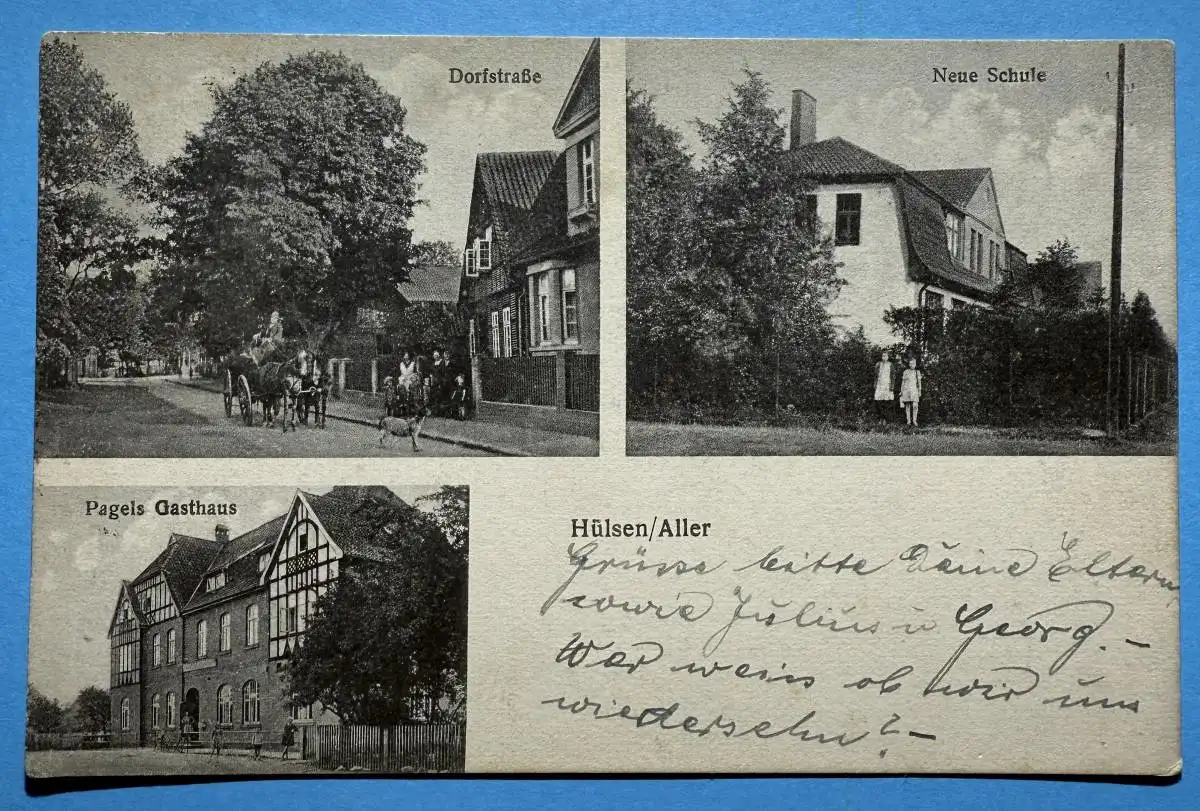 Dorfstraße
Neue Schule
Pagels Gasthaus
Hülsen/Aller
Grüsse bitte Deine Eltern,
sowie Julius u Georg. –
Wer weiss ob wir uns
wiedersehn? –